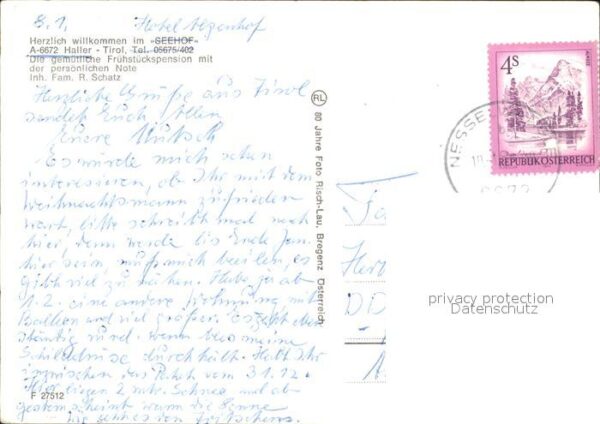 8.1. Hotel Alpenhof
Herzlich willkommen im "SEEHOF"
A-6672 Haller - Tirol, Tel. 05675/402
Die gemütliche Frühstückspension mit
der persönlichen Note
Inh. Fam. R. Schatz
Herzliche Grüße aus Tirol
sendet Euch Allen
Euere Mutsch
Es würde mich schon
interessieren, ob Ihr mit dem
Weihnachtsmann zufrieden
wart, bitte schreibt mal noch
hier, denn werde bis Ende Jan.
hier sein, muß mich beeilen, es
gibt viel zu nähen. Habe ja ab
1.2. eine andere Wohnung mit
Balkon und viel größer. Es geht eben
ständig rund. wenn bloß meine
Schilddrüse durchhält. Habt Ihr
inzwischen das Paket vom 31.12.
Hier liegen 2 mtr. Schnee und ab
gestern scheint wann die Sonne
F 27512
RL
80 Jahre Foto Risch-Lau, Bregenz Österreich
4S
REPUBLIK ÖSTERREICH
NESSE
6672
Fa
Her
DD
A
privacy protection
Datenschutz